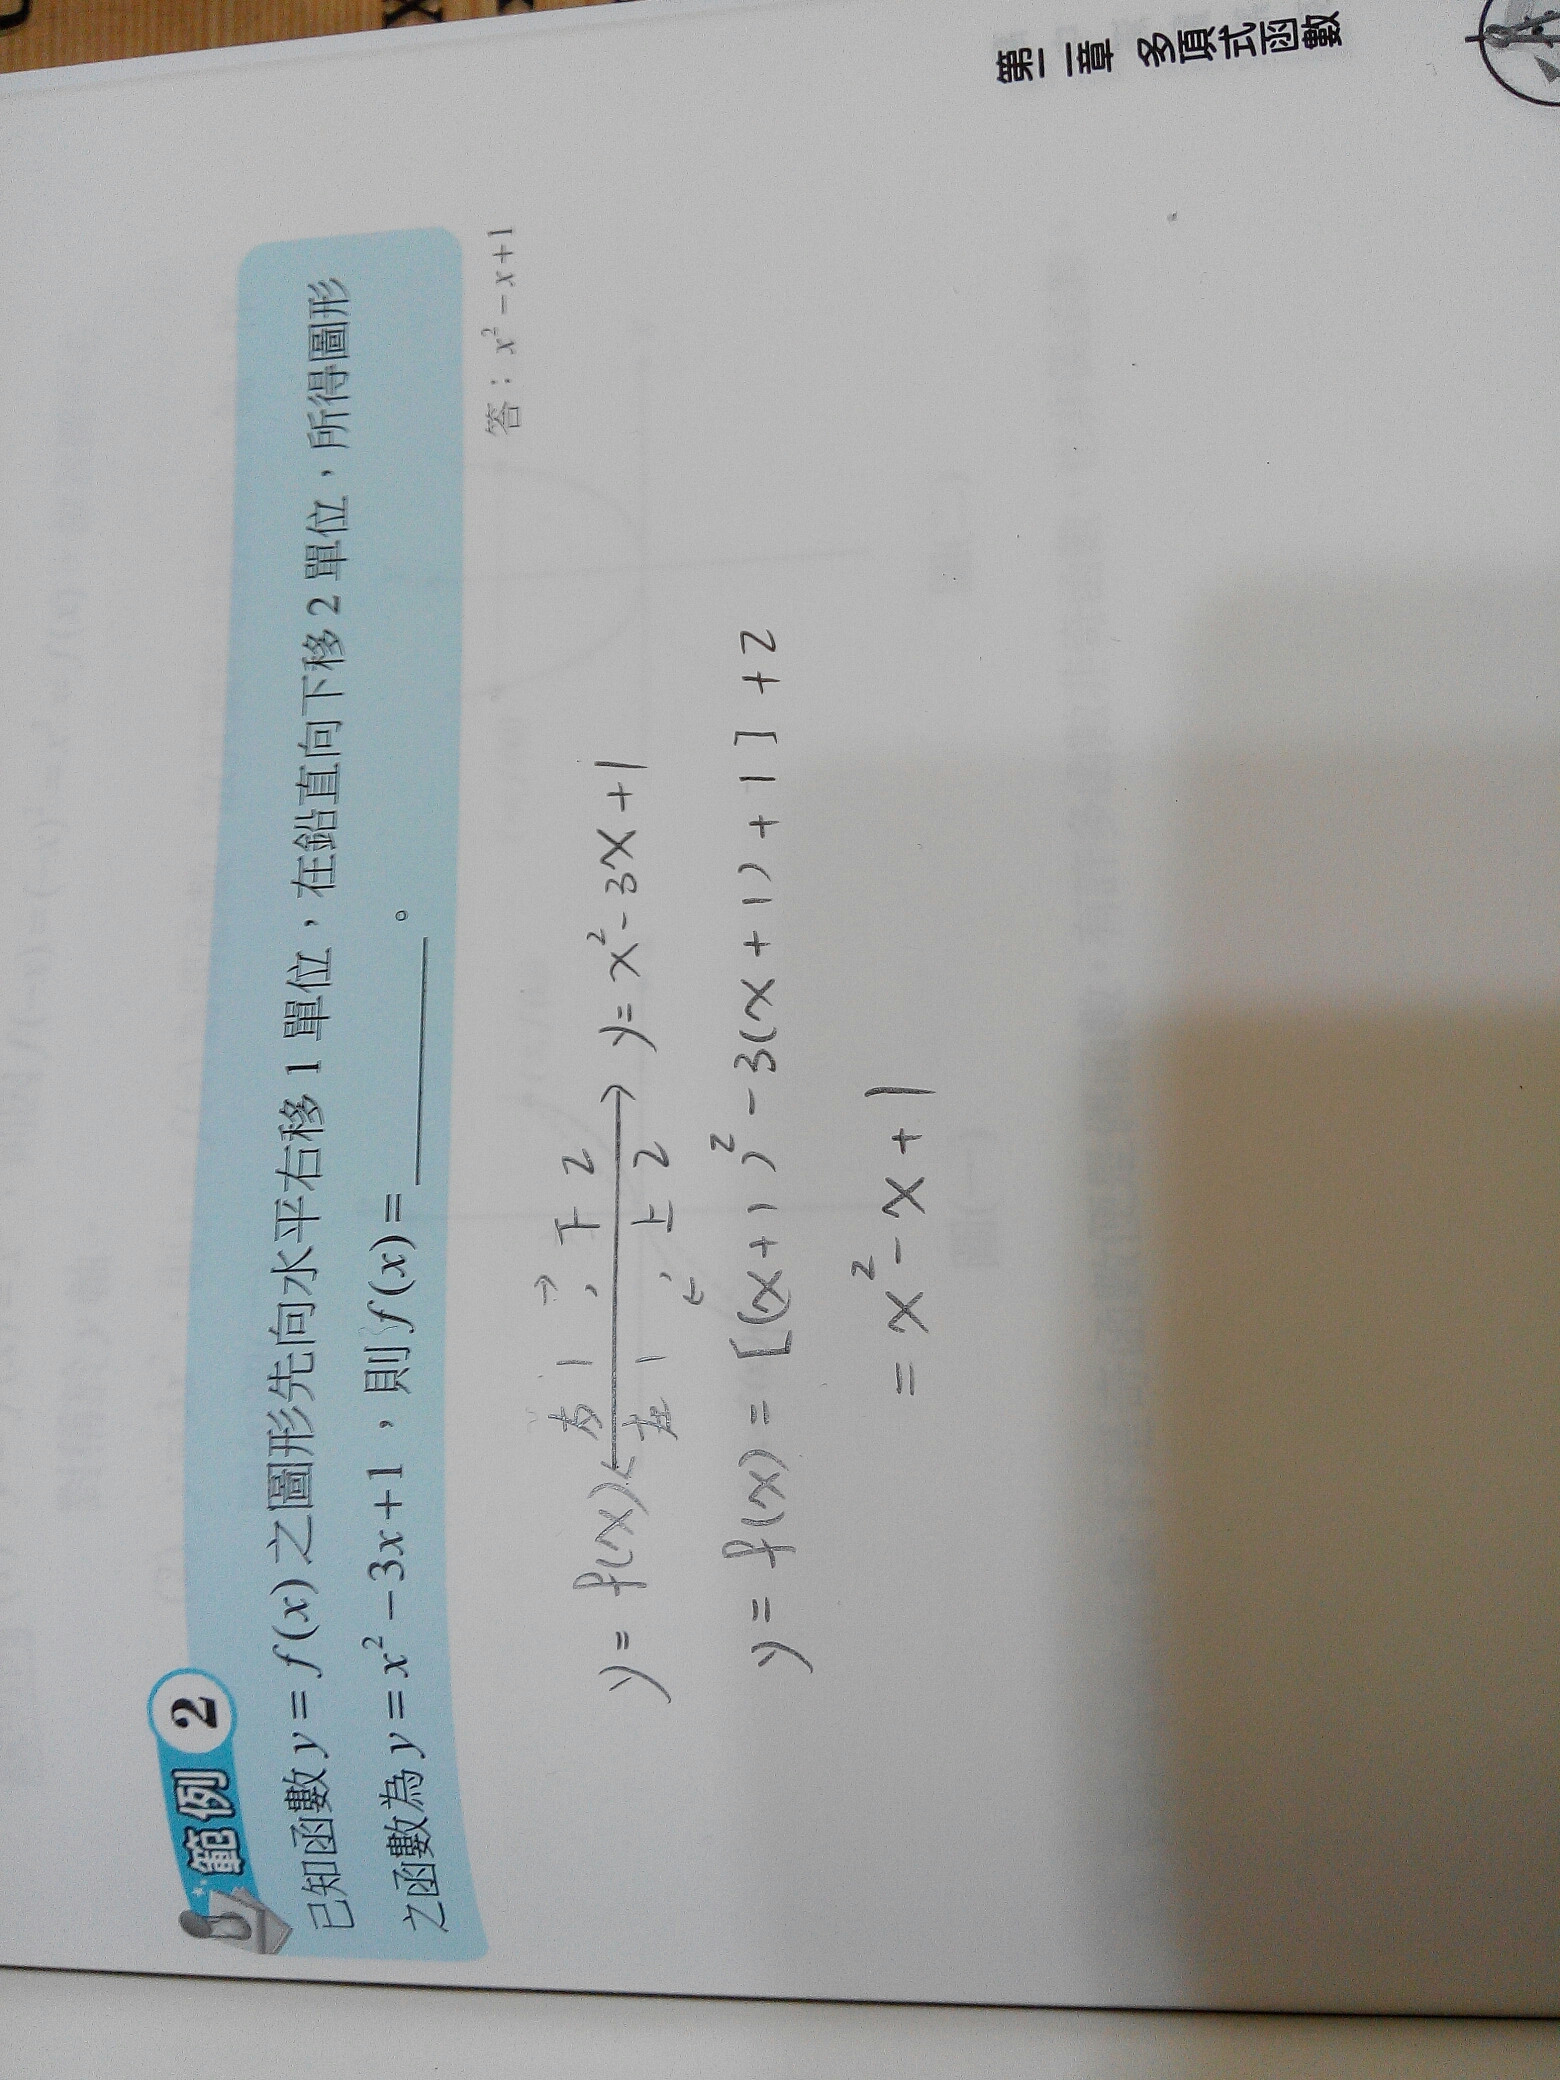 第二章 多項式函數
範例 2
已知函數 y = f(x) 之圖形先向水平右移 1 單位，在鉛直向下移 2 單位，所得圖形
之函數為 y = x² − 3x + 1，則 f(x) = ________。
答：x² − x + 1
右 1 , 下 2
y = f(x) ⟷ y = x² - 3x + 1
左 1 , 上 2
y = f(x) = [(x+1)² - 3(x+1) + 1] + 2
= x² - x + 1